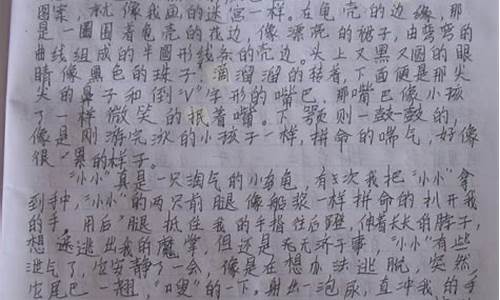 图案，就像我画的迷宫一样。在龟壳的边缘，那
是一圈围着龟壳的花边，像漂亮的裙子，由弯弯的
曲线组成的半圆形线条的壳边。头上又黑又圆的眼
睛像黑色的珠子，滴溜溜的转着，下面便是那尖
尖的鼻子和倒“V”字形的嘴巴，那嘴巴像小孩
了一样微笑的抿着嘴。下颚则一鼓一鼓的，
像是刚游完泳的小孩子一样，拼命的喘气，好像
很累的样子。
“小小”真是一只淘气的小乌龟，有次我把“小小”拿
到手中，“小小”的两只前腿像船桨一样拼命的扒开我
的手，用后腿抵住我的手指往后蹬，伸着长长的脖子，
想逃出我的魔掌，但还是无无济于事，“小小”有些
泄气了，它安静了一会，像是在想办法逃脱，突然，
它尾巴一翘，“嗖”的一下，射出一泡尿，直冲我的手